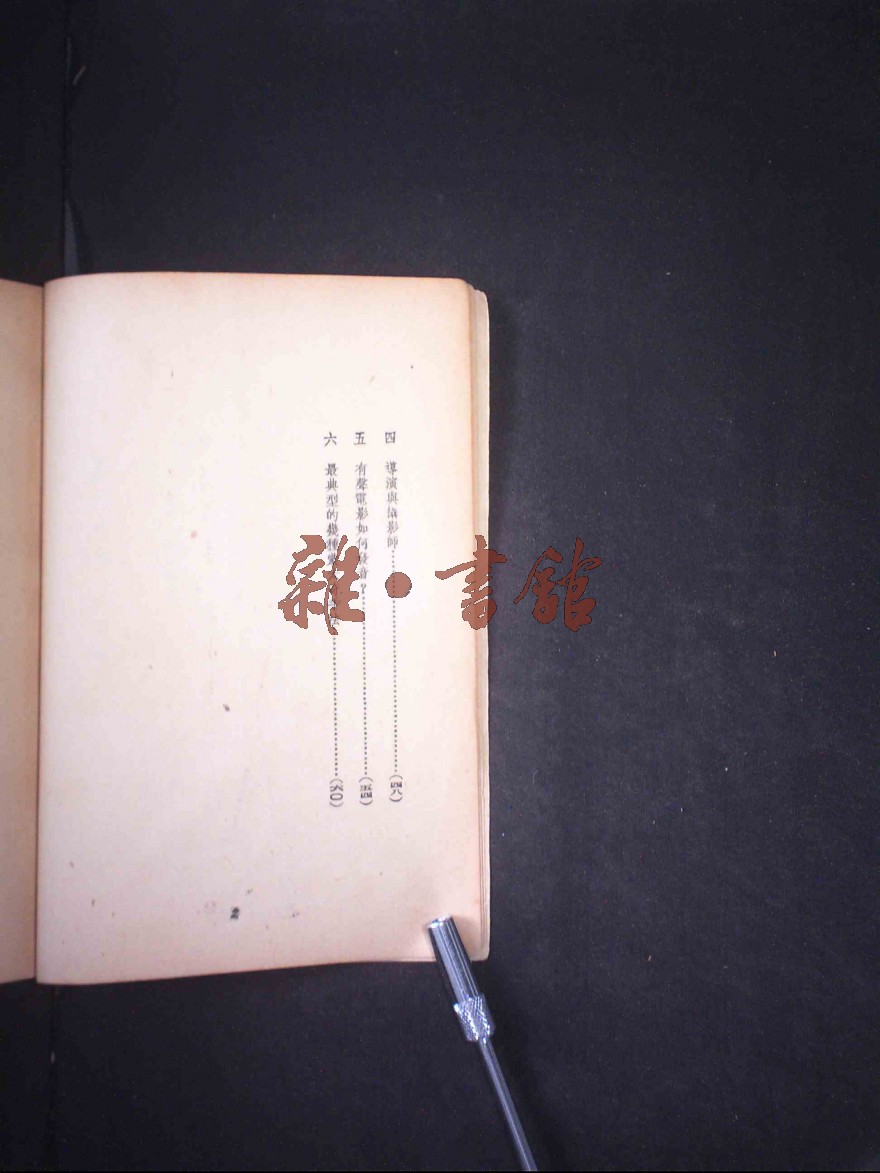 四 導演與攝影師……(四八)
五 有聲電影如何發音?……(五四)
六 最典型的幾種……(六〇)
2
雜·書館